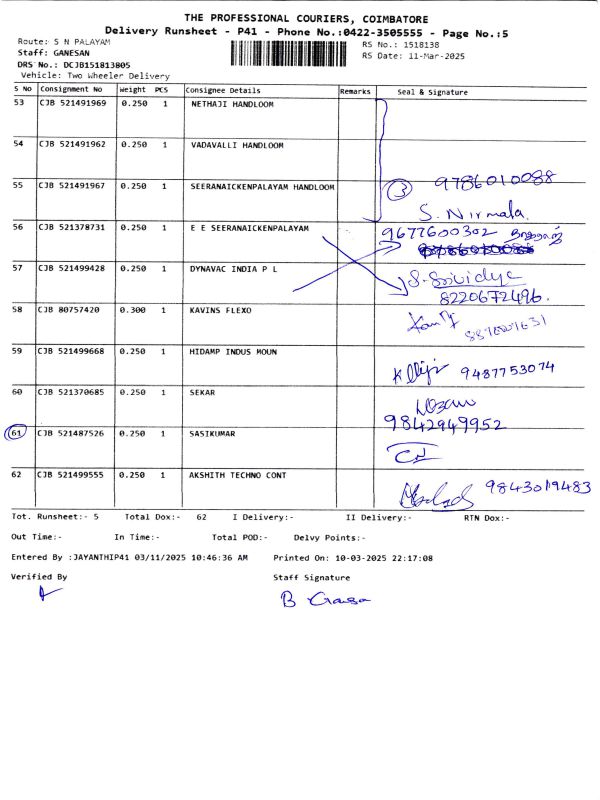 THE PROFESSIONAL COURIERS, COIMBATORE
Delivery Runsheet - P41 - Phone No.:0422-3505555 - Page No.:5
Route: S N PALAYAM
RS No.: 1518138
Staff: GANESAN
RS Date: 11-Mar-2025
DRS No.: DCJB151813805
Vehicle: Two Wheeler Delivery
S No Consignment No Weight PCS Consignee Details Remarks Seal & Signature
53 CJB 521491969 0.250 1 NETHAJI HANDLOOM
54 CJB 521491962 0.250 1 VADAVALLI HANDLOOM
55 CJB 521491967 0.250 1 SEERANAICKENPALAYAM HANDLOOM
3 9786010088
S. Nirmala
56 CJB 521378731 0.250 1 E E SEERANAICKENPALAYAM
9677600302
57 CJB 521499428 0.250 1 DYNAVAC INDIA P L
S. Srividya
8220672496.
58 CJB 80757420 0.300 1 KAVINS FLEXO
59 CJB 521499668 0.250 1 HIDAMP INDUS MOUN
9487753074
60 CJB 521370685 0.250 1 SEKAR
9842949952
61 CJB 521487526 0.250 1 SASIKUMAR
62 CJB 521499555 0.250 1 AKSHITH TECHNO CONT
9843019483
Tot. Runsheet:- 5 Total Dox:- 62 I Delivery:- II Delivery:- RTN Dox:-
Out Time:- In Time:- Total POD:- Delvy Points:-
Entered By :JAYANTHIP41 03/11/2025 10:46:36 AM Printed On: 10-03-2025 22:17:08
Verified By Staff Signature